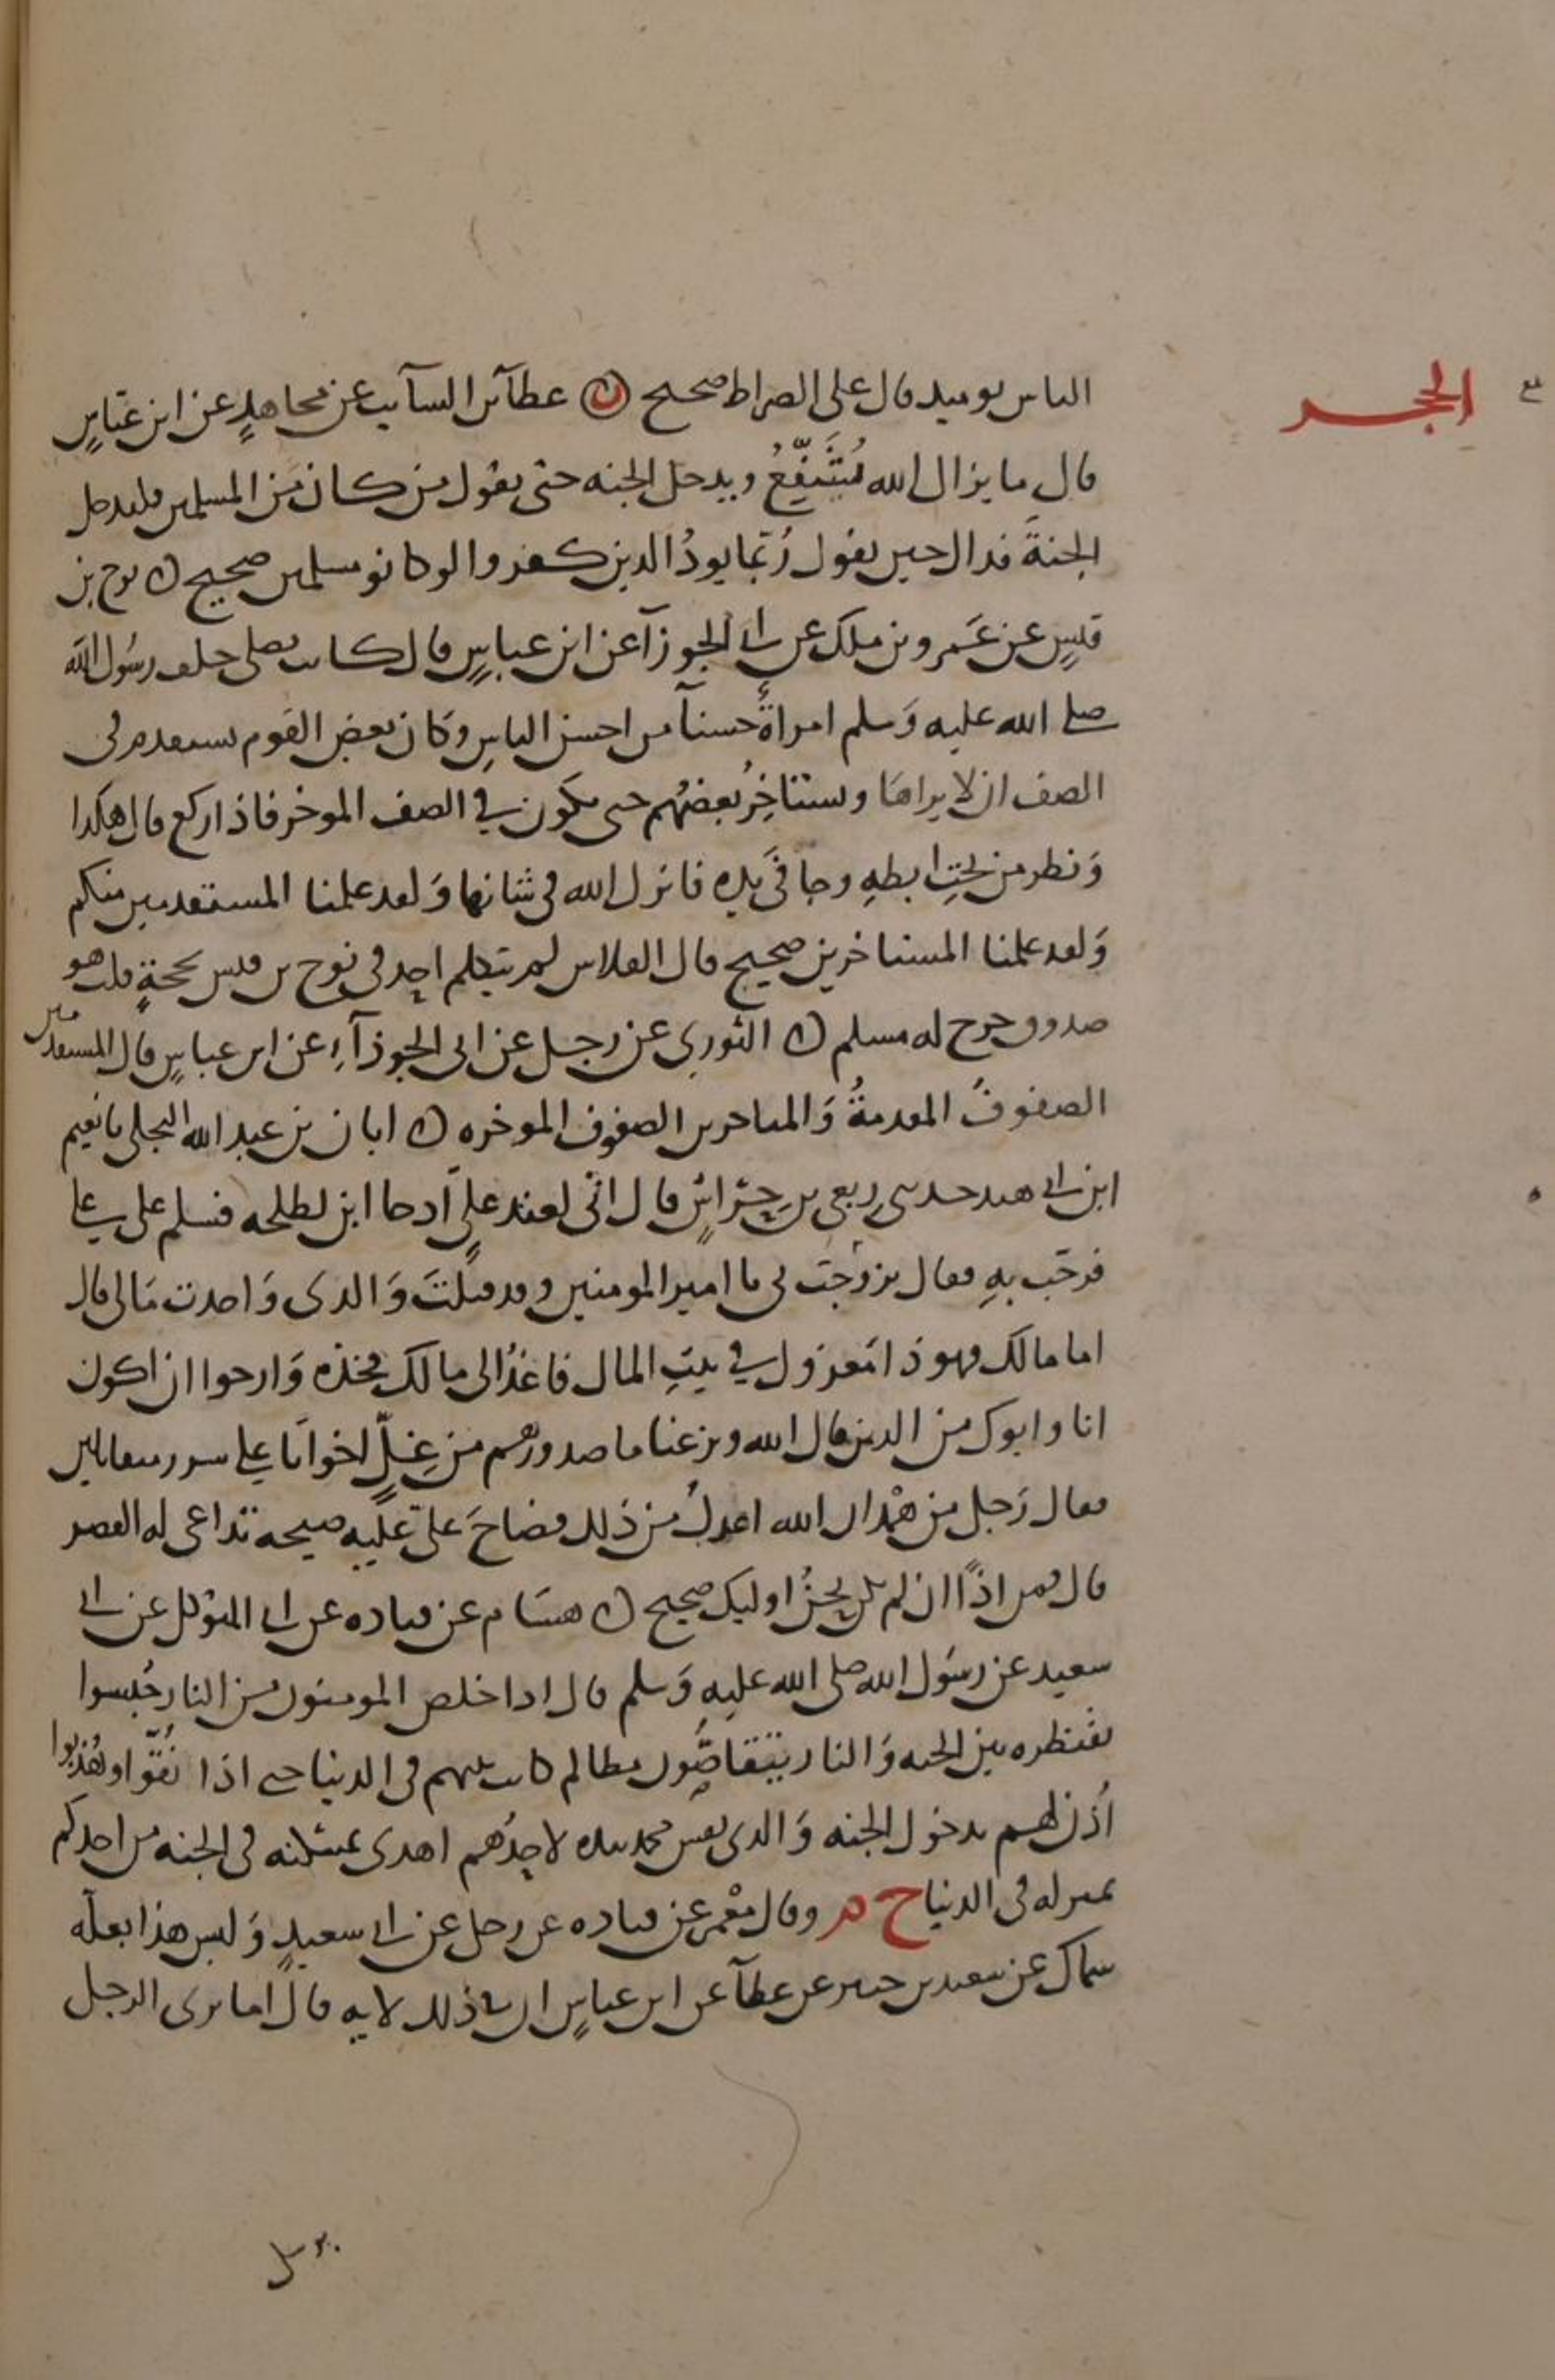 الحجر
الناس يوميد قال على الصراط صحيح ن عطآ بن السآيب عن مجاهدٍ عن ابن عبّاسٍ
قال ما يزال الله يُشَفِّعُ ويدخل الجنه حتى يقول من كان من المسلمين فليدخل
الجنةَ فداك حين يقول رُبّما يودُ الذين كفروا لو كانو مسلمين صحيح ن نوح بن
قيسٍ عن عَمرو بن ملك عن ابي الجوزآ عن ابن عباسٍ قال كانت تصلي خلف رسُول الله
صلى الله عليه وَسلم امراةٌ حسنآ من احسن الناسِ وَكان بعض القوم يستقدم في
الصف ان لا يراها ويستاخِرُ بعضهُم حتى يكون في الصف الموخر فاذا ركع قال هكذا
وَنظر من تحتِ ابطهِ وجافى يده فانزل الله في شانها وَلقد علمنا المستقدمين منكم
وَلقد علمنا المستاخرين صحيح قال الفلاس لم يتكلم احد في نوح بن قيس بحجةٍ قلت هو
صدوق خرج له مسلم ن الثوري عن رجل عن ابي الجوزآءِ عن ابن عباسٍ قال المستقدمين
الصفوفُ المقدمةُ وَالمتاخرين الصفوف الموخره ن ابان بن عبد الله البجلي نا نعيم
ابن ابي هند حدثني رِبعي بن حِرّاشٍ قال اني لعند عليٍ اذ جا ابن لطلحه فسلم على علي
فرحّب بهِ فقال ترحّب بي يا امير المومنين وقد قتلتَ وَالدي وَاخذت مَالي قال
اما مالك فهو ذا مَعزول في بيتِ المال فاغدُ الى مالك فخذه وَارجوا ان اكون
انا وابوك من الذين قال الله ونزعنا ما صدورهم من غِلٍّ اخوانَا على سرر متقابلين
فقال رَجل من همْدان الله اعدلُ من ذلك فصَاحَ عَليّ عليه صيحه تداعى له القصر
قال فمن اذًا ان لم نكن نحنُ اوليك صحيح ن هشام عن قتاده عن ابي المتوكل عن ابي
سعيد عن رسوُل الله صلى الله عليهِ وَسلم قال اذا خلص المومنون من النار حُبسوا
بقنطره بين الجنه وَالنار يتقاصّون مظالم كانت بينهم في الدنيا حتى اذا نُقّوا وهُذبوا
اُذن لهم بدخول الجنه وَالذي نفس محمد بيده لاحدُهم اهدى بمسكنه في الجنه من احدكم
بمنزله في الدنيا خ م وقال معْمر عن قتاده عن رجل عن ابي سعيدٍ وَليس هذا بعلّه
سماك عن سعيد بن جبير عن عطآ عن ابن عباسٍ ان في ذلك لايه قال اما ترى الرجل
يرسل